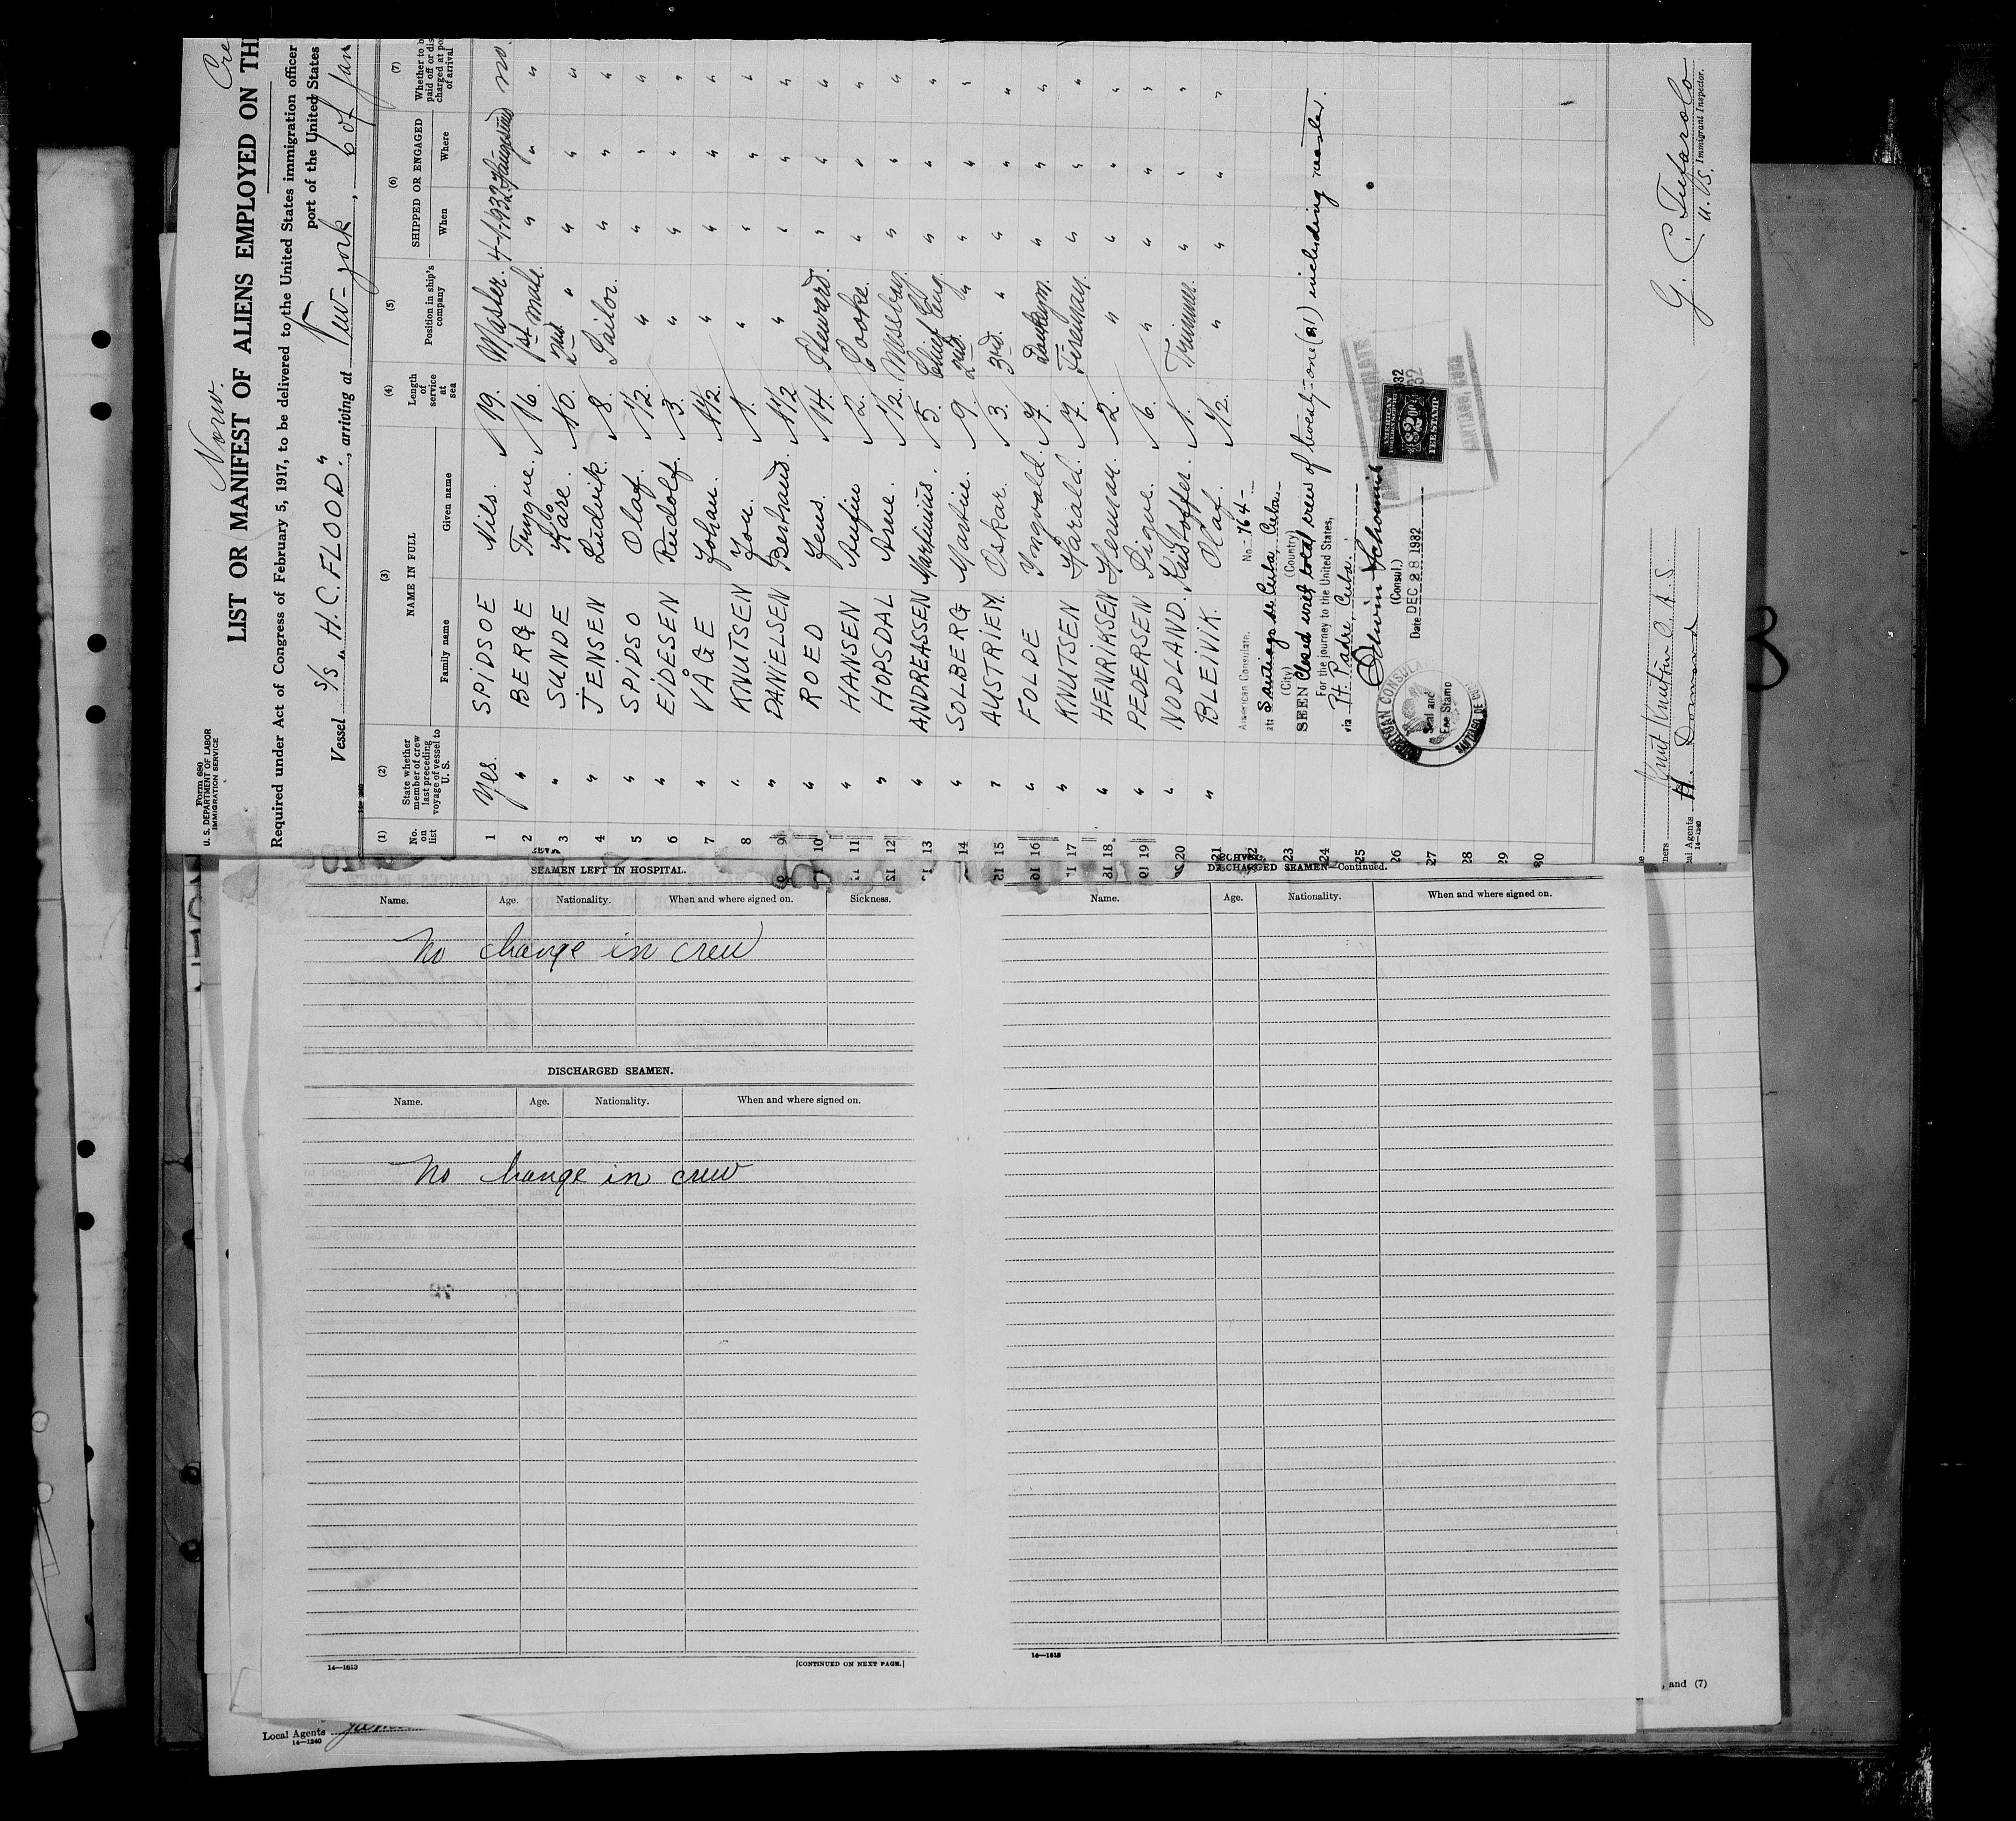 Form 680
U. S. DEPARTMENT OF LABOR
IMMIGRATION SERVICE
Norw.
Cre
LIST OR MANIFEST OF ALIENS EMPLOYED ON TH
Required under Act of Congress of February 5, 1917, to be delivered to the United States immigration officer
port of the United States
Vessel S/S „H.C. FLOOD.“, arriving at New-york, 6 of Jan
(1) (2) (3) (4) (5) (6) (7)
No. on list
State whether member of crew last preceding voyage of vessel to U. S.
NAME IN FULL
Family name Given name
Length of service at sea
Position in ship's company
SHIPPED OR ENGAGED
When Where
Whether to b paid off or dis charged at po of arrival
1 Yes. SPIDSOE Nils. 19. Master. 4-1-1932 Haugesund no.
2 " BERGE Trygve. 16. 1st mate. " " "
3 " SUNDE Kåre. 10. 2nd " " " "
4 " JENSEN Ludvik. 8. Sailor. " " "
5 " SPIDSO Olaf. 1/2. " " " "
6 " EIDESEN Rudolf. 3. " " " "
7 " VÅGE Johan. 1/2. " " " "
8 " KNUTSEN Jon. 1. " " " "
9 " DANIELSEN Bertrand. 1/2. " " " "
10 " ROED Jens. 14. Steward. " " "
11 " HANSEN Anfin 2. Cooke. " " "
12 " HOPSDAL Arne. 1/2. Messboy. " " "
13 " ANDREASSEN Martinius. 5. Chief Eng. " " "
14 " SOLBERG Martin. 9. 2nd. " " " "
15 " AUSTRIEM. Oskar. 3. 3rd. " " " "
16 " FOLDE Yngvald. 7. Donkeym. " " "
17 " KNUTSEN Harald. 7. Fireman. " " "
18 " HENRIKSEN Herman. 2. " " " "
19 " PEDERSEN Sigve. 6. " " " "
20 " NODLAND. Kristoffer. 1. Trimmer. " " "
21 " BLEIVIK. Olaf. 1/2. " " " "
22
23
24
25
26
27
28
29
30
American Consulate. No. 764-
at: Santiago de Cuba, Cuba.
(City) (Country)
SEEN Closed with total crew of twenty-one (21) including master.
For the journey to the United States,
via Pt. Padre, Cuba.
Edwin Schoenrich
(Consul.)
Date DEC 28 1932
Seal and
Fee Stamp
AMERICAN
FOREIGN SERVICE
FEE STAMP
SANTIAGO, CUBA
G. C. Tufarolo
U. S. Immigrant Inspector.
ners Knut Knutsen O. A. S
al Agents H.
14—1240
SEAMEN LEFT IN HOSPITAL.
Name. Age. Nationality. When and where signed on. Sickness.
No change in crew
DISCHARGED SEAMEN.
Name. Age. Nationality. When and where signed on.
No change in crew
14—1813 [CONTINUED ON NEXT PAGE.]
DISCHARGED SEAMEN—Continued.
Name. Age. Nationality. When and where signed on.
14—1813
, and (7)
Local Agents
14—1240